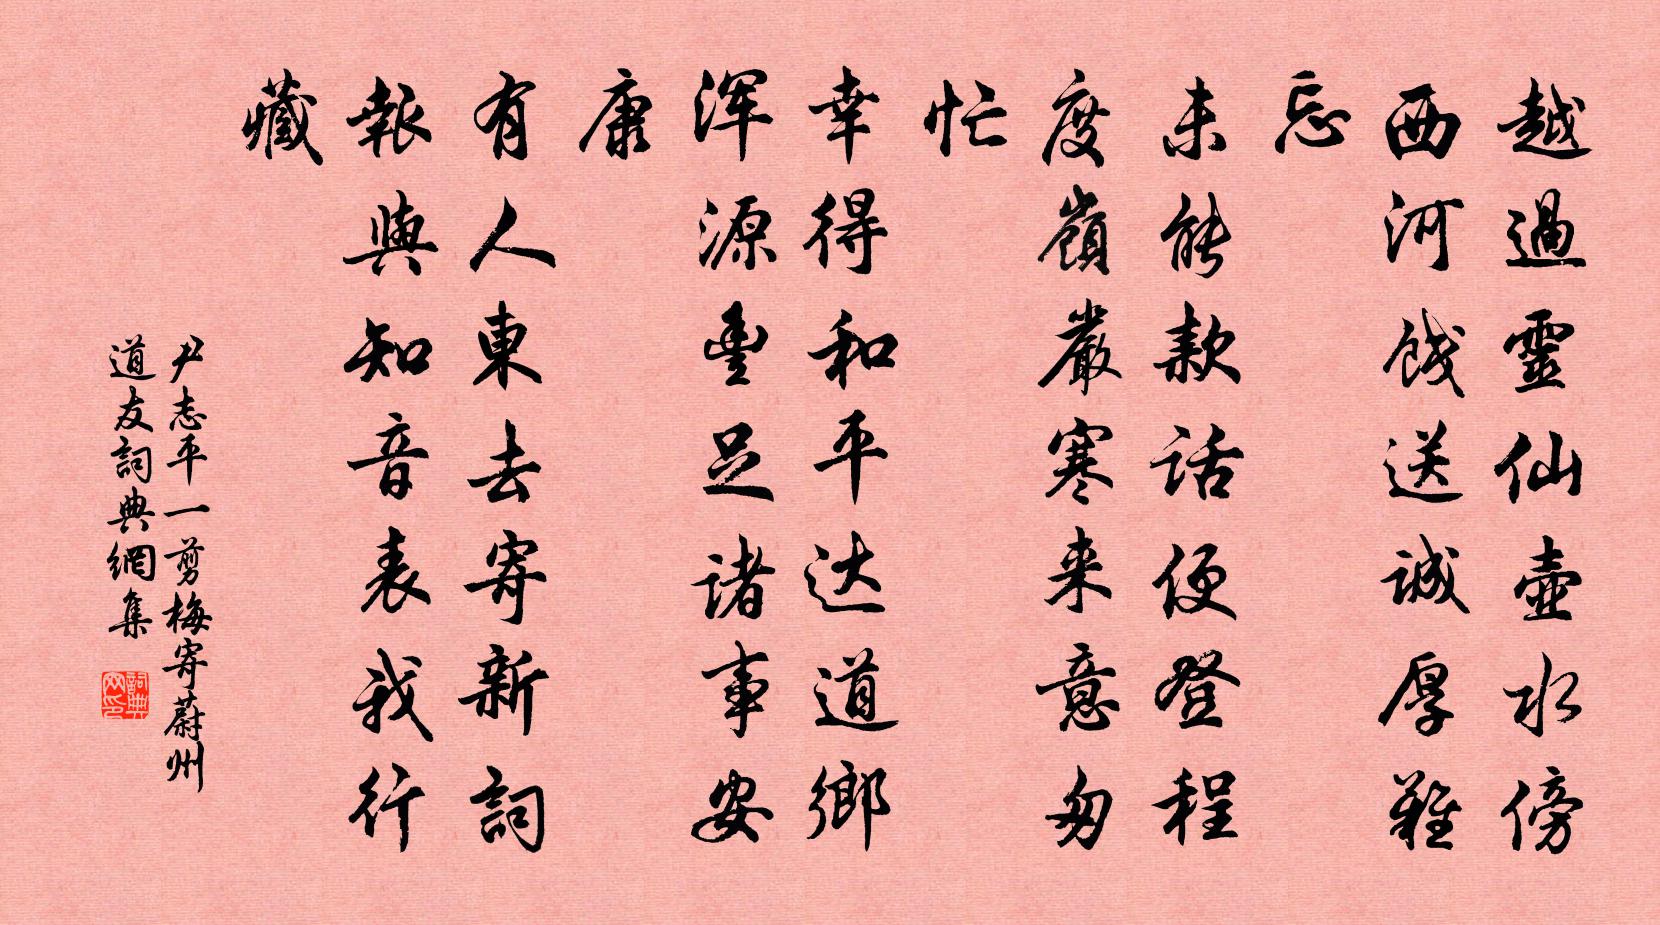 越過靈仙壺水傍
西河餞送誠厚難
忘
未能款話便登程
度嶺嚴寒来意匆
忙
幸得和平达道鄉
浑源豊足诸事安
康
有人東去寄新詞
報與知音表我行
藏
尹志平一剪梅寄蔚州
道友詞典網集
詞典
网印